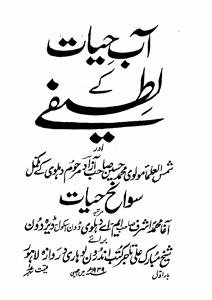 آبِ حیات
کے
لطیفے
اور
شمس العلما مولوی محمد حسین صاحب آزاد مرحوم دہلوی کے مکمل
سوانح حیات
آغا محمد اشرف صاحب ایم۔ اے دہلوی دون سکول ڈیرہ دون
برائے
شیخ مبارک علی تاجر کتب اندرون لوہاری دروازہ لاہور
بار اول
قیمت